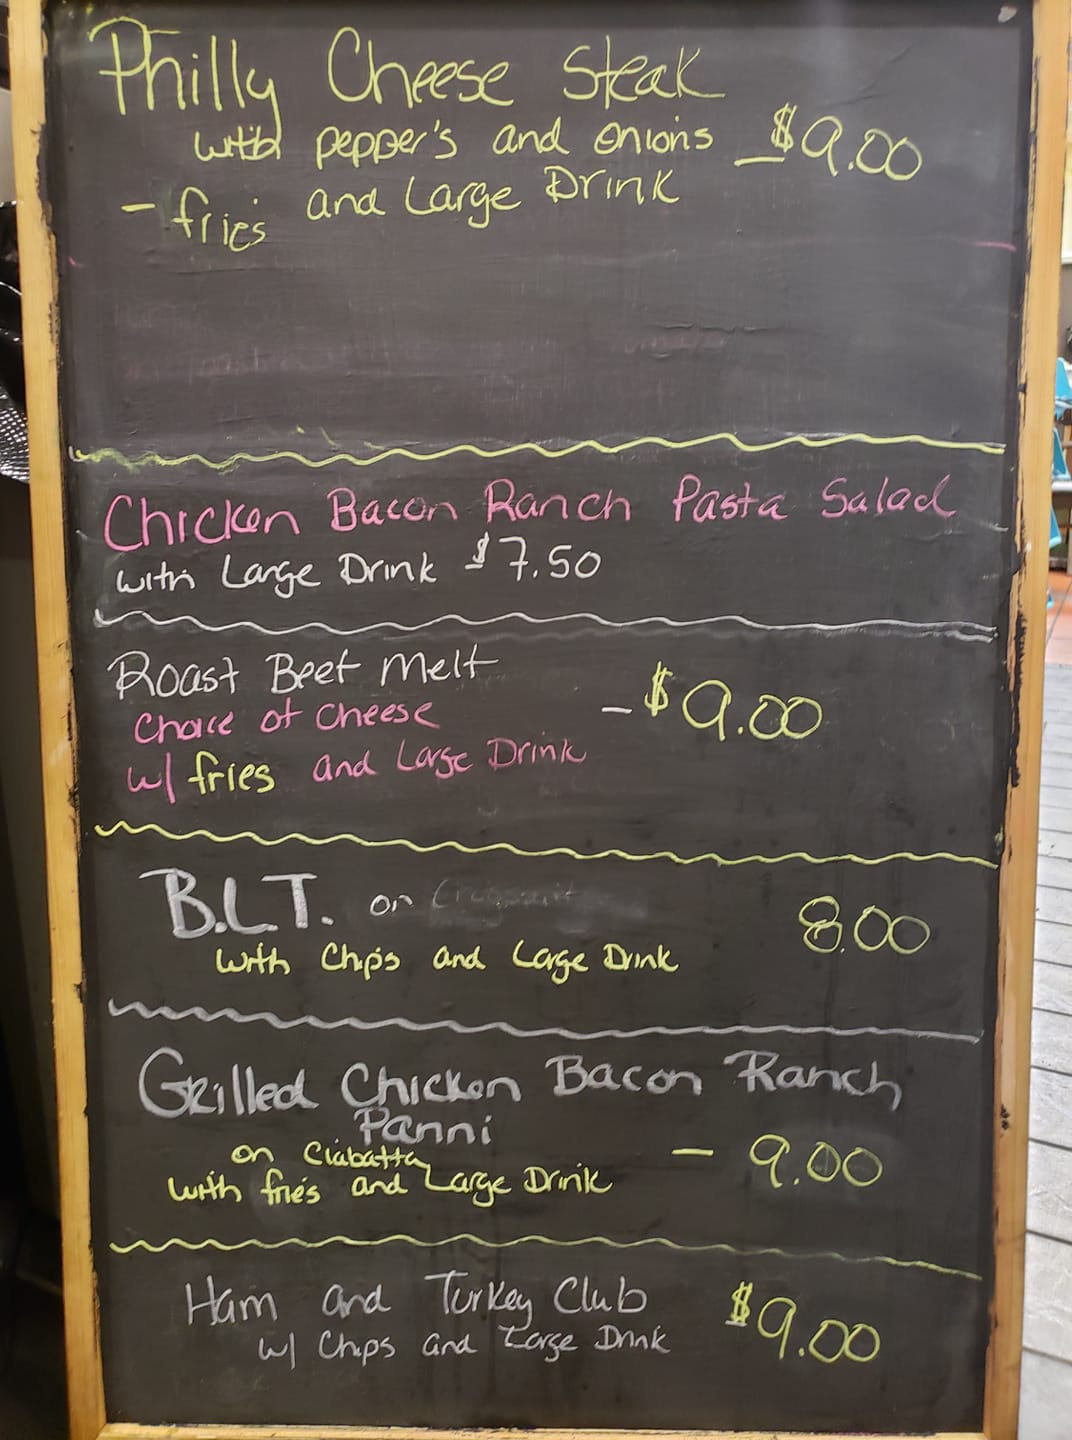 Philly Cheese Steak
with pepper's and onions - $9.00
- fries and Large Drink
Chicken Bacon Ranch Pasta Salad
with Large Drink $7.50
Roast Beef Melt
Choice of Cheese - $9.00
w/ fries and Large Drink
B.L.T. on 8.00
with Chips and Large Drink
Grilled Chicken Bacon Ranch
Panni
on Ciabatta - 9.00
with fries and Large Drink
Ham and Turkey Club $9.00
w/ Chips and Large Drink